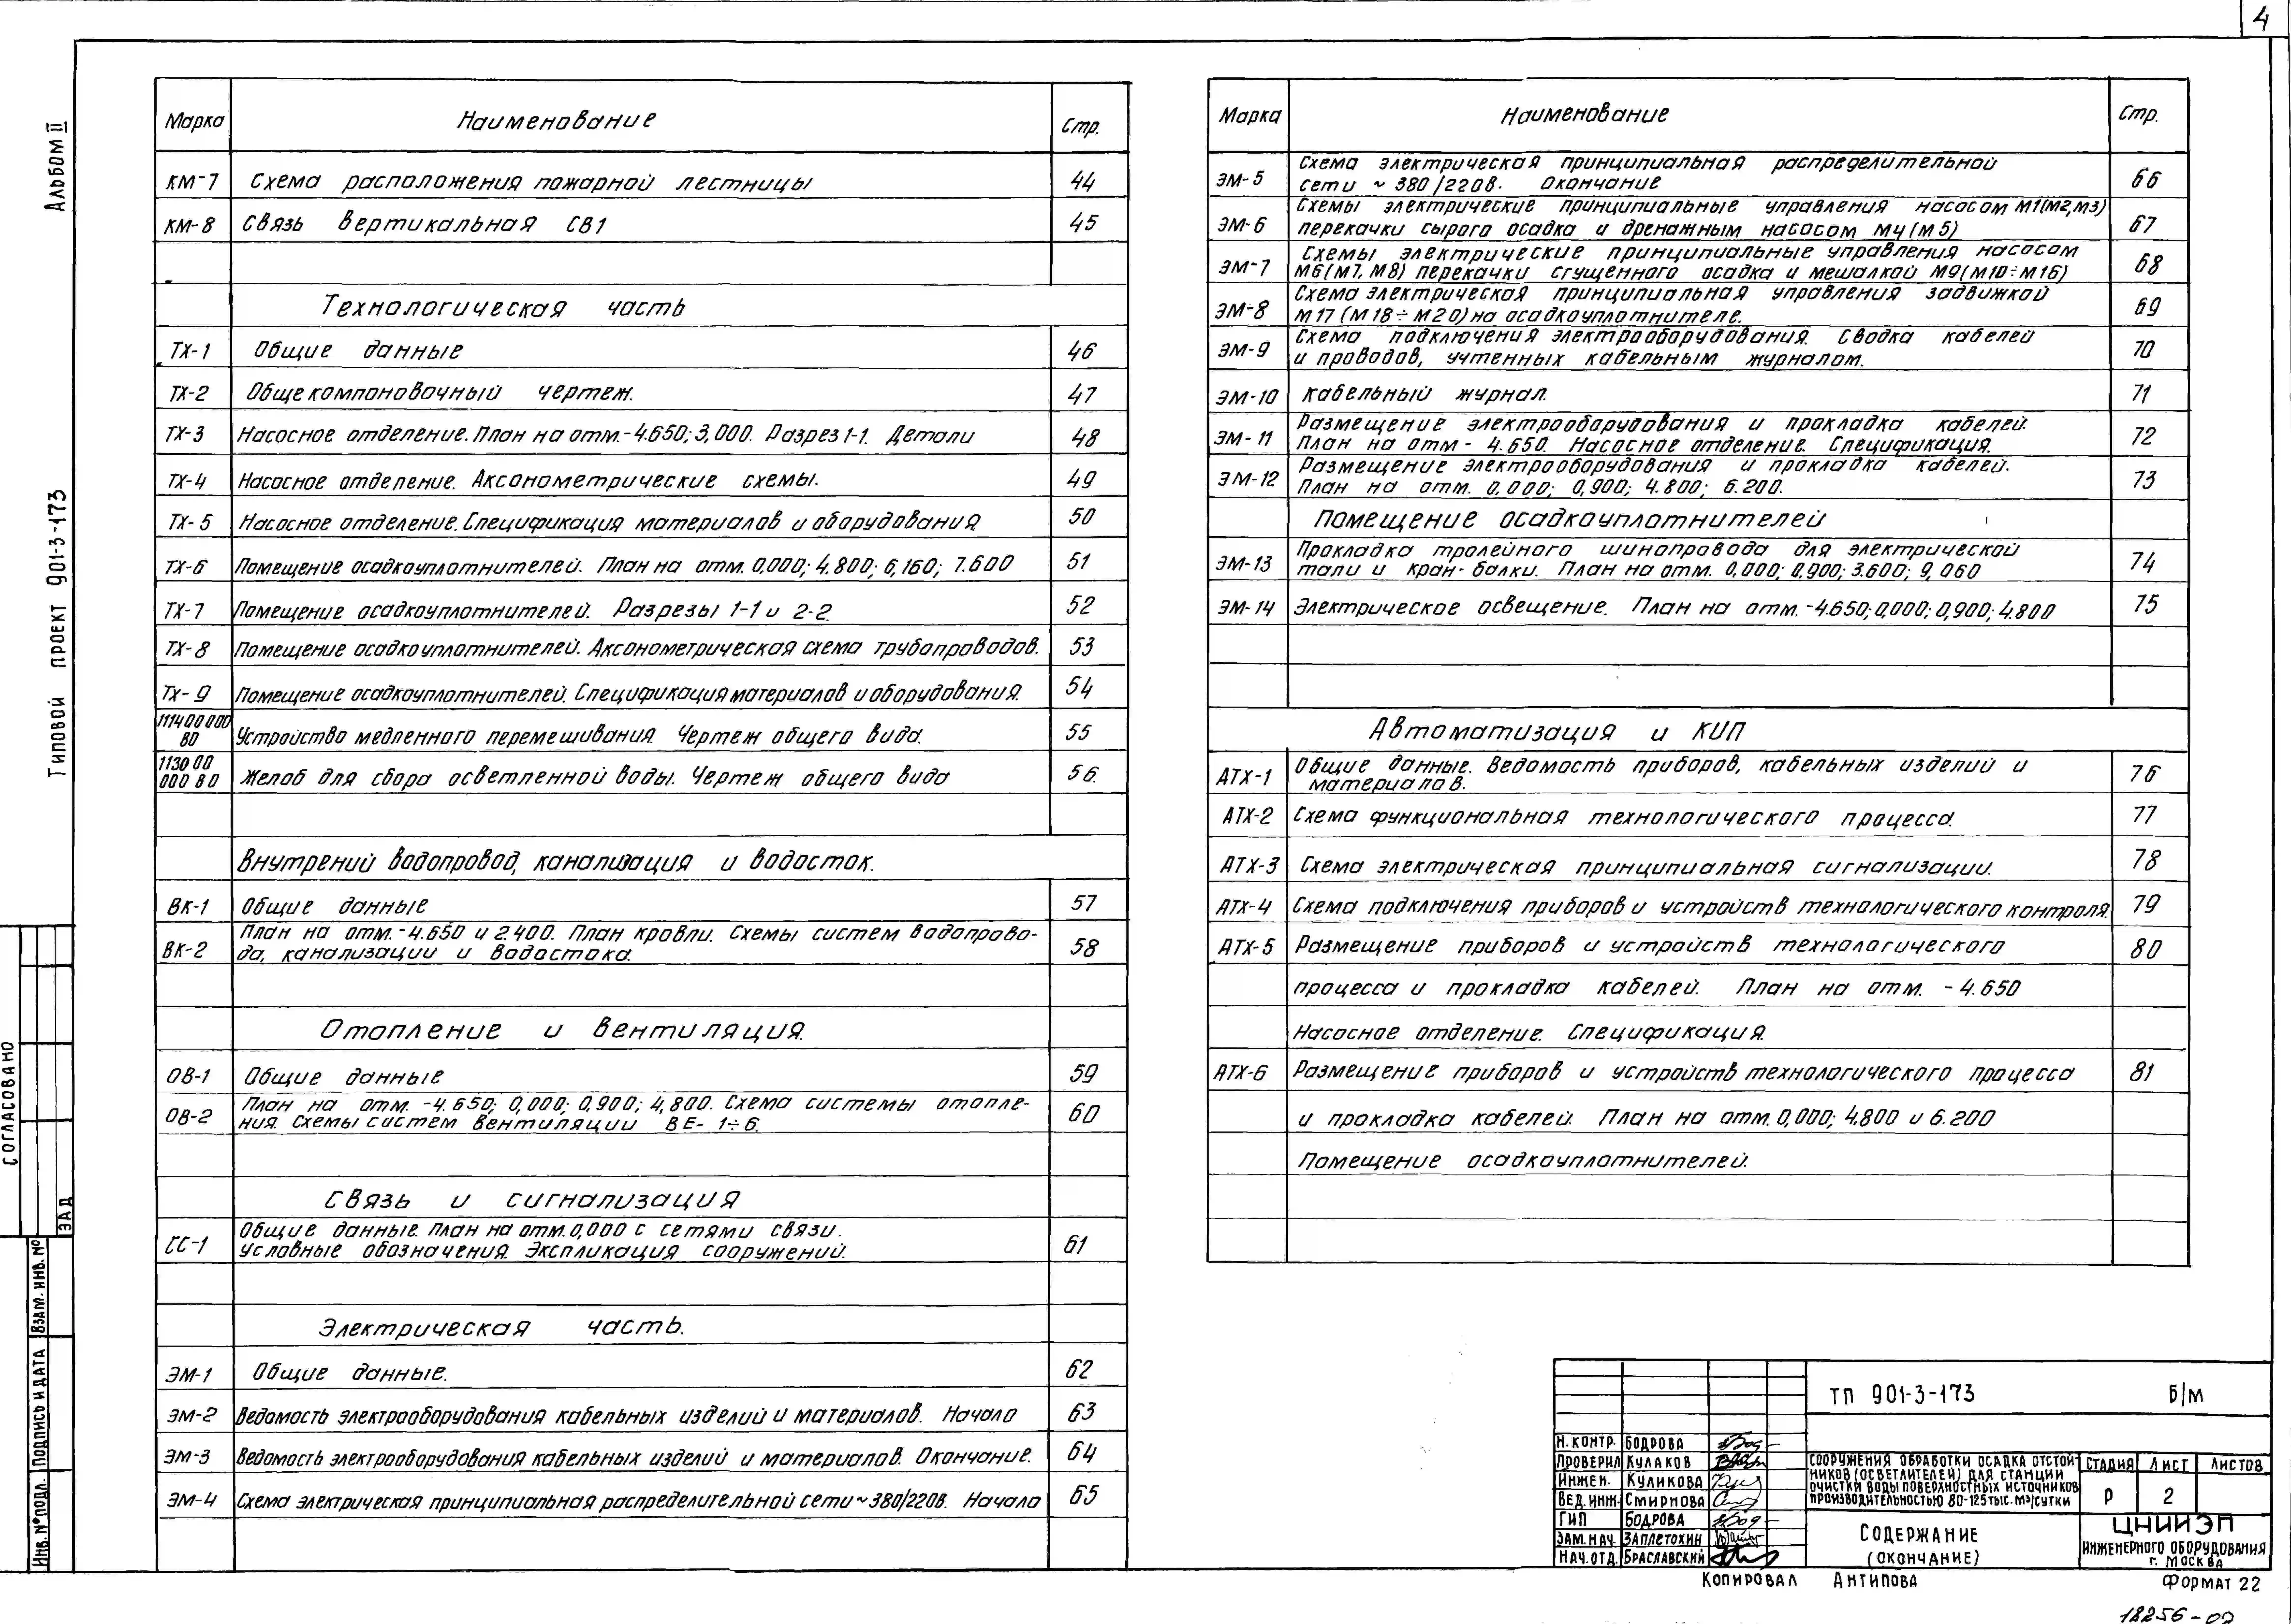 4
Альбом II
Типовой проект 901-3-173
Марка Наименование Стр.
КМ-7 Схема расположения пожарной лестницы 44
КМ-8 Связь вертикальная СВ1 45
Технологическая часть
ТХ-1 Общие данные 46
ТХ-2 Общекомпоновочный чертеж. 47
ТХ-3 Насосное отделение. План на отм.-4.650; 3,000. Разрез 1-1. Детали 48
ТХ-4 Насосное отделение. Аксонометрические схемы. 49
ТХ-5 Насосное отделение. Спецификация материалов и оборудования. 50
ТХ-6 Помещение осадкоуплотнителей. План на отм. 0,000; 4.800; 6,160; 7.600 51
ТХ-7 Помещение осадкоуплотнителей. Разрезы 1-1 и 2-2. 52
ТХ-8 Помещение осадкоуплотнителей. Аксонометрическая схема трубопроводов. 53
ТХ-9 Помещение осадкоуплотнителей. Спецификация материалов и оборудования. 54
11400000
ВО Устройство медленного перемешивания. Чертеж общего вида. 55
113000
000 ВО Желоб для сбора осветленной воды. Чертеж общего вида 56.
Внутрений водопровод, канализация и водосток.
ВК-1 Общие данные 57
ВК-2 План на отм.-4.650 и 2.400. План кровли. Схемы систем водопрово-
да, канализации и водостока. 58
Отопление и вентиляция.
ОВ-1 Общие данные 59
ОВ-2 План на отм. -4.650; 0,000; 0,900; 4,800. Схема системы отопле-
ния. Схемы систем вентиляции ВЕ- 1÷6. 60
Связь и сигнализация
СС-1 Общие данные. План на отм. 0,000 с сетями связи.
Условные обозначения. Экспликация сооружений. 61
Электрическая часть.
ЭМ-1 Общие данные. 62
ЭМ-2 Ведомость электрооборудования кабельных изделий и материалов. Начало 63
ЭМ-3 Ведомость электрооборудования кабельных изделий и материалов. Окончание. 64
ЭМ-4 Схема электрическая принципиальная распределительной сети ~380/220в. Начало 65
Марка Наименование Стр.
ЭМ-5 Схема электрическая принципиальная распределительной
сети ~ 380/220в. Окончание 66
ЭМ-6 Схемы электрические принципиальные управления насосом М1(М2,М3)
перекачки сырого осадка и дренажным насосом М4(М5) 67
ЭМ-7 Схемы электрические принципиальные управления насосом
М6(М7, М8) перекачки сгущенного осадка и мешалкой М9(М10÷М16) 68
ЭМ-8 Схема электрическая принципиальная управления задвижкой
М17 (М18÷М20) на осадкоуплотнителе. 69
ЭМ-9 Схема подключения электрооборудования. Сводка кабелей
и проводов, учтенных кабельным журналом. 70
ЭМ-10 Кабельный журнал. 71
ЭМ-11 Размещение электрооборудования и прокладка кабелей.
План на отм - 4.650. Насосное отделение. Спецификация. 72
ЭМ-12 Размещение электрооборудования и прокладка кабелей.
План на отм. 0.000; 0,900; 4.800; 6.200. 73
Помещение осадкоуплотнителей
ЭМ-13 Прокладка тролейного шинопровода для электрической
тали и кран-балки. План на отм. 0,000; 0,900; 3.600; 9,060 74
ЭМ-14 Электрическое освещение. План на отм.-4.650; 0,000; 0,900; 4.800 75
Автоматизация и КИП
АТХ-1 Общие данные. Ведомость приборов, кабельных изделий и
материалов. 76
АТХ-2 Схема функциональная технологического процесса. 77
АТХ-3 Схема электрическая принципиальная сигнализации. 78
АТХ-4 Схема подключения приборов и устройств технологического контроля. 79
АТХ-5 Размещение приборов и устройств технологического 80
процесса и прокладка кабелей. План на отм. -4.650
Насосное отделение. Спецификация.
АТХ-6 Размещение приборов и устройств технологического процесса 81
и прокладка кабелей. План на отм. 0,000; 4.800 и 6.200
Помещение осадкоуплотнителей.
СОГЛАСОВАНО
ЗАД
ИНВ. № ПОДЛ. ПОДПИСЬ И ДАТА ВЗАМ. ИНВ. №
ТП 901-3-173 б/м
Н. КОНТР. БОДРОВА
ПРОВЕРИЛ КУЛАКОВ
ИНЖЕН. КУЛИКОВА
ВЕД. ИНЖ. СМИРНОВА
ГИП БОДРОВА
ЗАМ. НАЧ. ЗАПЛЕТОХИН
НАЧ. ОТД. БРАСЛАВСКИЙ
СООРУЖЕНИЯ ОБРАБОТКИ ОСАДКА ОТСТОЙ-
НИКОВ (ОСВЕТЛИТЕЛЕЙ) ДЛЯ СТАНЦИИ
ОЧИСТКИ ВОДЫ ПОВЕРХНОСТНЫХ ИСТОЧНИКОВ
ПРОИЗВОДИТЕЛЬНОСТЬЮ 80-125 ТЫС. М³/СУТКИ
СТАДИЯ ЛИСТ ЛИСТОВ
Р 2
СОДЕРЖАНИЕ
(ОКОНЧАНИЕ)
ЦНИИЭП
ИНЖЕНЕРНОГО ОБОРУДОВАНИЯ
г. МОСКВА
КОПИРОВАЛ АНТИПОВА ФОРМАТ 22
18256-02